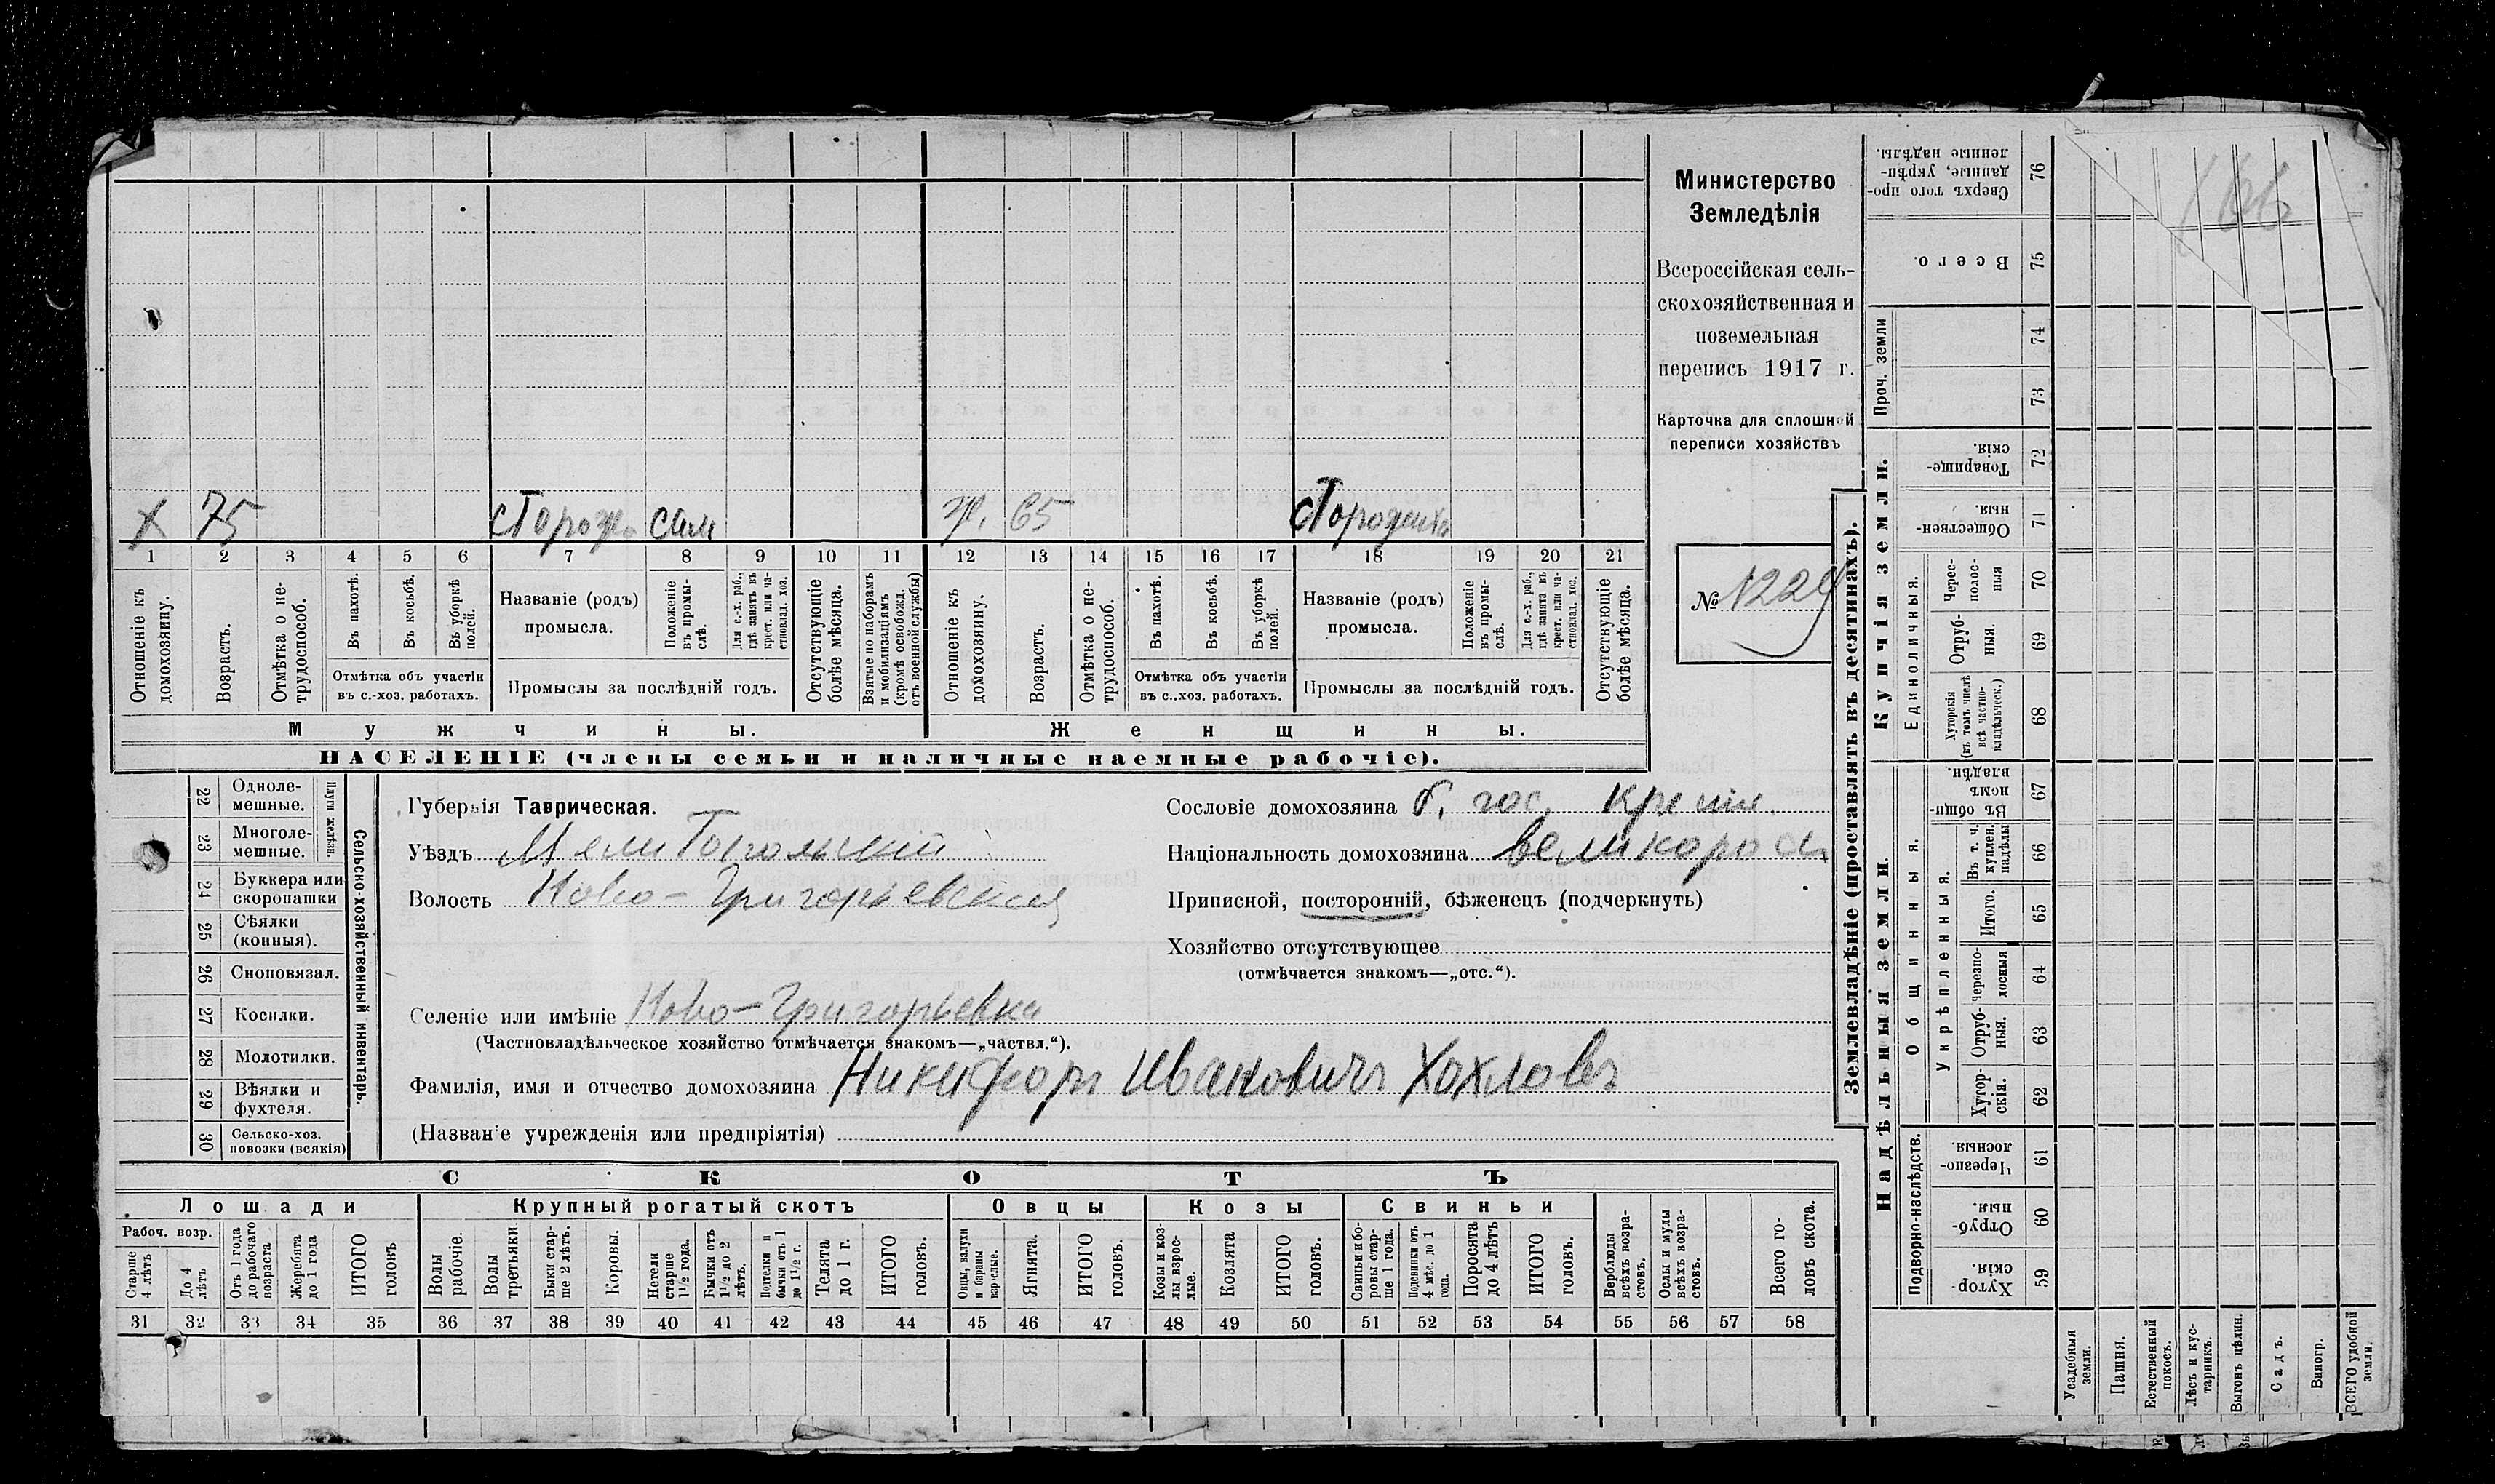 Министерство
Земледѣлія
Всероссійская сель-
скохозяйственная и
поземельная
перепись 1917 г.
Карточка для сплошной
переписи хозяйствъ
№ 1224
166
Х 75 сторожъ сам ж. 65 сторожиха
1 2 3 4 5 6 7 8 9 10 11 12 13 14 15 16 17 18 19 20 21
Отношеніе къ домохозяину.
Возрастъ.
Отмѣтка о не-трудоспособ.
Въ пахотѣ.
Въ косьбѣ.
Въ уборкѣ полей.
Отмѣтка объ участіи
въ с.-хоз. работахъ.
Названіе (родъ)
промысла.
Положеніе въ промы-слѣ.
Для с.-х. раб., гдѣ занятъ въ крест. или ча-стновлад. хоз.
Промыслы за послѣдній годъ.
Отсутствующіе болѣе мѣсяца.
Взятые по наборамъ и мобилизаціямъ (кромѣ освобожд. отъ военной службы)
Отношеніе къ домохозяину.
Возрастъ.
Отмѣтка о не-трудоспособ.
Въ пахотѣ.
Въ косьбѣ.
Въ уборкѣ полей.
Отмѣтка объ участіи
въ с..хоз. работахъ.
Названіе (родъ)
промысла.
Положеніе въ промы-слѣ.
Для с.-х. раб., гдѣ занята въ крест. или ча-стновлад. хоз.
Промыслы за послѣдній годъ.
Отсутствующіе болѣе мѣсяца.
Мужчины. Женщины.
НАСЕЛЕНІЕ (члены семьи и наличные наемные рабочіе).
22 Одноле-мешные.
23 Многоле-мешные.
Плуги желѣзн.
24 Буккера или скоропашки
25 Сѣялки (конныя).
26 Сноповязал.
27 Косилки.
28 Молотилки.
29 Вѣялки и фухтеля.
30 Сельско-хоз. повозки (всякія)
Сельско-хозяйственный инвентарь.
Губернія Таврическая.
Уѣздъ Мелитопольскій
Волость Ново-Григорьевская
Селеніе или имѣніе Ново-Григорьевка
(Частновладѣльческое хозяйство отмѣчается знакомъ—„частвл.“).
Фамилія, имя и отчество домохозяина Никифоръ Ивановичъ Хохловъ
(Названіе учрежденія или предпріятія)
Сословіе домохозяина б. гос. крестя.
Національность домохозяина великоросс
Приписной, посторонній, бѣженецъ (подчеркнуть)
Хозяйство отсутствующее
(отмѣчается знакомъ—„отс.“).
СКОТЪ
Лошади Крупный рогатый скотъ Овцы Козы Свиньи
Рабоч. возр.
Старше 4 лѣтъ
До 4 лѣтъ
Отъ 1 года до рабочаго возраста
Жеребята до 1 года
ИТОГО головъ
Волы рабочіе.
Волы третьяки.
Быки стар-ше 2 лѣтъ.
Коровы.
Нетели старше 1½ года.
Бычки отъ 1½ до 2 лѣтъ.
Подтелки и бычки отъ 1 до 1½ г.
Телята до 1 г.
ИТОГО головъ.
Овцы, валухи и бараны взрослые.
Ягнята.
ИТОГО головъ.
Козы и коз-лы взрос-лые.
Козлята
ИТОГО головъ.
Свиньи и бо-ровы стар-ше 1 года.
Подсвинки отъ 4 мѣс. до 1 года.
Поросята до 4 лѣтъ
ИТОГО головъ.
Верблюды всѣхъ возра-стовъ.
Ослы и мулы всѣхъ возра-стовъ.
Всего го-ловъ скота.
31 32 33 34 35 36 37 38 39 40 41 42 43 44 45 46 47 48 49 50 51 52 53 54 55 56 57 58
Землевладѣніе (проставлять въ десятинахъ).
Купчія земли.
Надѣльныя земли.
Проч. земли
Единоличныя.
Общинныя.
Укрѣпленныя.
Подворно-наслѣдств.
Сверхъ того про-данные, укрѣп-ленные надѣлы. 76
Всего. 75
74
73
Товарище-скія. 72
Обществен-ныя. 71
Черес-полос-ныя 70
Отруб-ныя. 69
Хуторскія (въ томъ числѣ всѣ частно-владѣльческ.) 68
Въ общин-номъ владѣн. 67
Въ т. ч. куплен. надѣлы 66
Итого. 65
черезпо-лосныя 64
Отруб-ныя. 63
Хутор-скія. 62
Черезпо-лосныя. 61
Отруб-ныя. 60
Хутор-скія. 59
Усадебныя земли.
Пашня.
Естественный покосъ.
Лѣсъ и кус-тарникъ.
Выгонъ цѣлин.
Садъ.
Виногр.
ВСЕГО удобной земли.